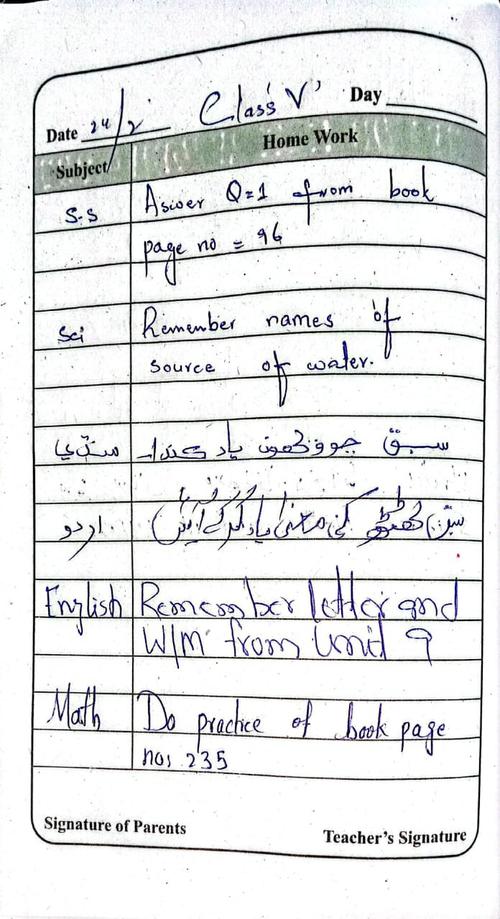 Class V'
Day
Date 24/2
Subject Home Work
S.S Aswer Q=1 from book
page no = 96
Sci Remember names of
source of water.
سنڌي سبق جو وکھون ياد ڪندا۔
اردو سبق کی معنی یاد کر کے آئیں
English Remember letter and
W/M from Unit 9
Math Do practice of book page
no; 235
Signature of Parents
Teacher's Signature